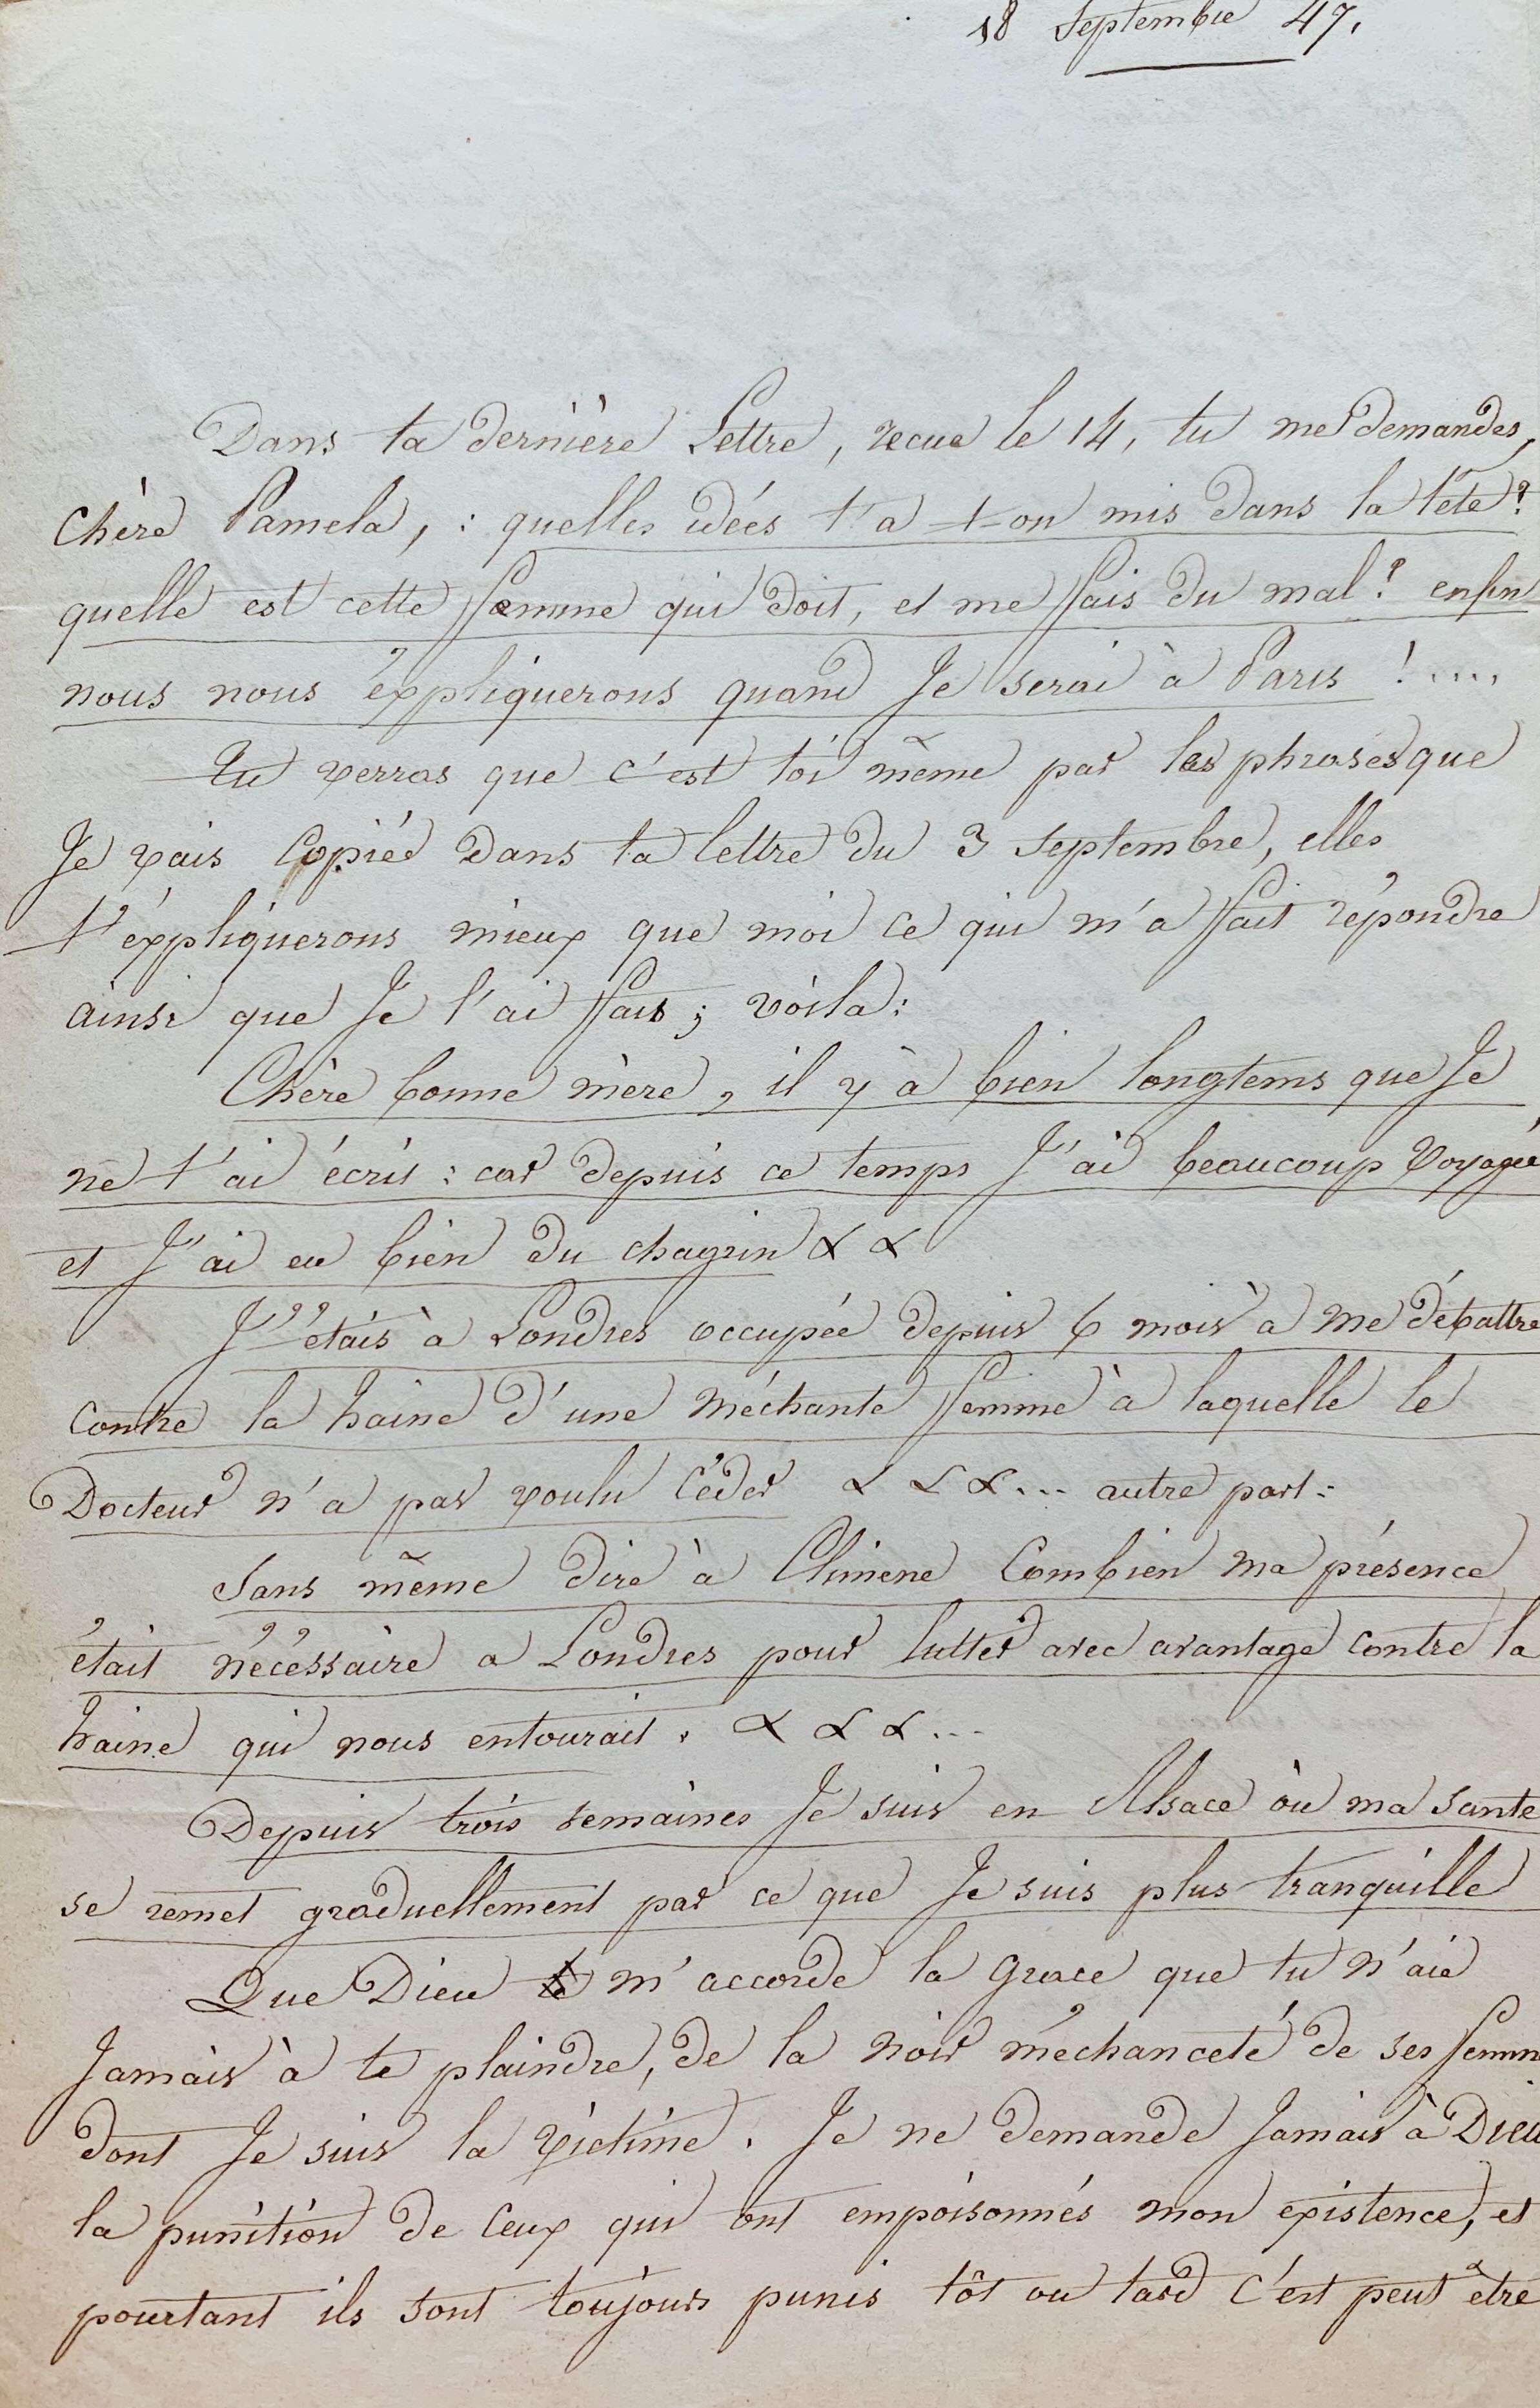 18 Septembre 47.
Dans ta dernière Lettre, recue le 14, tu me demandes,
Chère Pamela, : quelles idées t'a-t-on mis dans la tête?
quelle est cette femme qui doit, et me fais du mal? enfin
nous nous éxpliquerons quand Je serai à Paris !....
Tu verras que c'est toi même par les phrases que
Je vais Copiée dans ta lettre du 3 Septembre, elles
t'éxpliquerons mieux que moi ce qui m'a fait répondre
ainsi que Je l'ai fais ; voila :
Chère bonne mère, il y à bien longtems que Je
ne t'ai écris : car depuis ce temps J'ai beaucoup Voyagée
et J'ai eu bien du chagrin & &
J'étais à Londres occupée depuis 6 mois à me débattre
contre la haine d'une méchante femme à laquelle le
Docteur n'a pas voulu céder & & &... autre part :
Sans même dire à Climene Combien ma présence
était nécéssaire a Londres pour lutter avec avantage contre la
haine qui nous entourait. & & &...
Depuis trois semaines Je suis en Alsace où ma sante
se remet graduellement par ce que Je suis plus tranquille
Que Dieu m'accorde la grace que tu n'aie
Jamais à te plaindre, de la noir méchanceté de ses femm
dont Je suis la victime. Je ne demande Jamais à Dieu
la punition de Ceux qui ont empoisonnés mon existence, et
pourtant ils sont toujours punis tôt ou tard c'est peut être